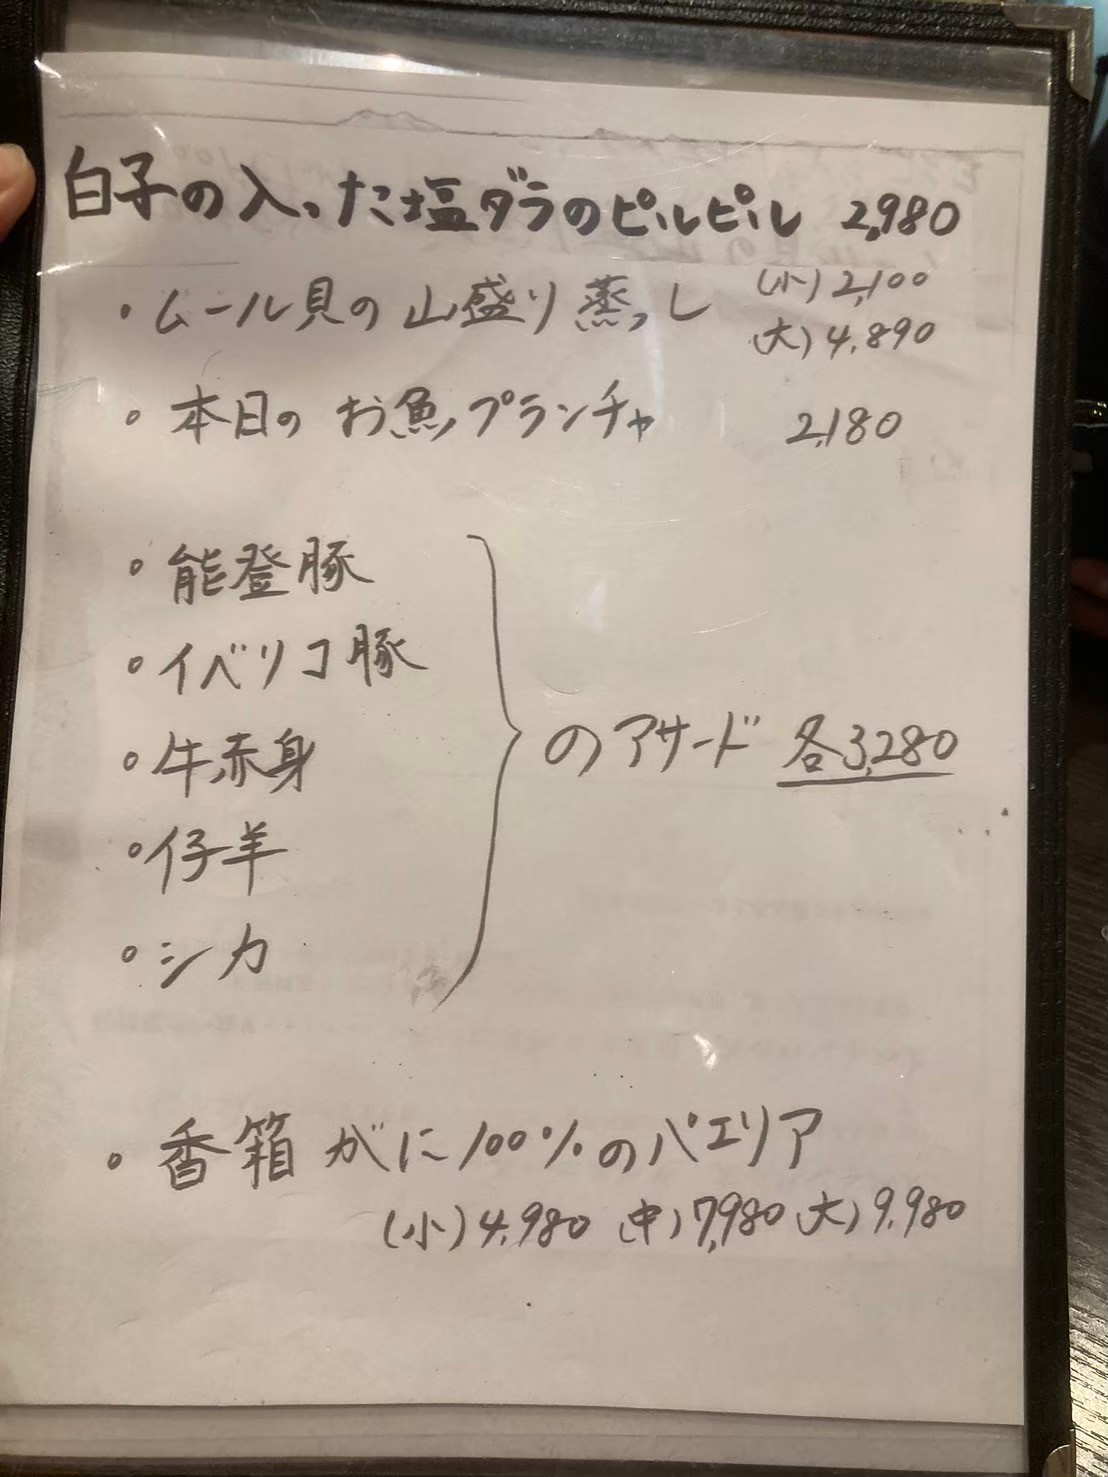 白子の入った塩ダラのピルピル 2,980
・ムール貝の山盛り蒸っし (小)2,100
(大)4,890
・本日のお魚プランチャ 2,180
・能登豚
・イベリコ豚
・牛赤身
のアサード 各3,280
・仔羊
・シカ
・香箱がに100%のパエリア
(小)4,980 (中)7,980 (大)9,980